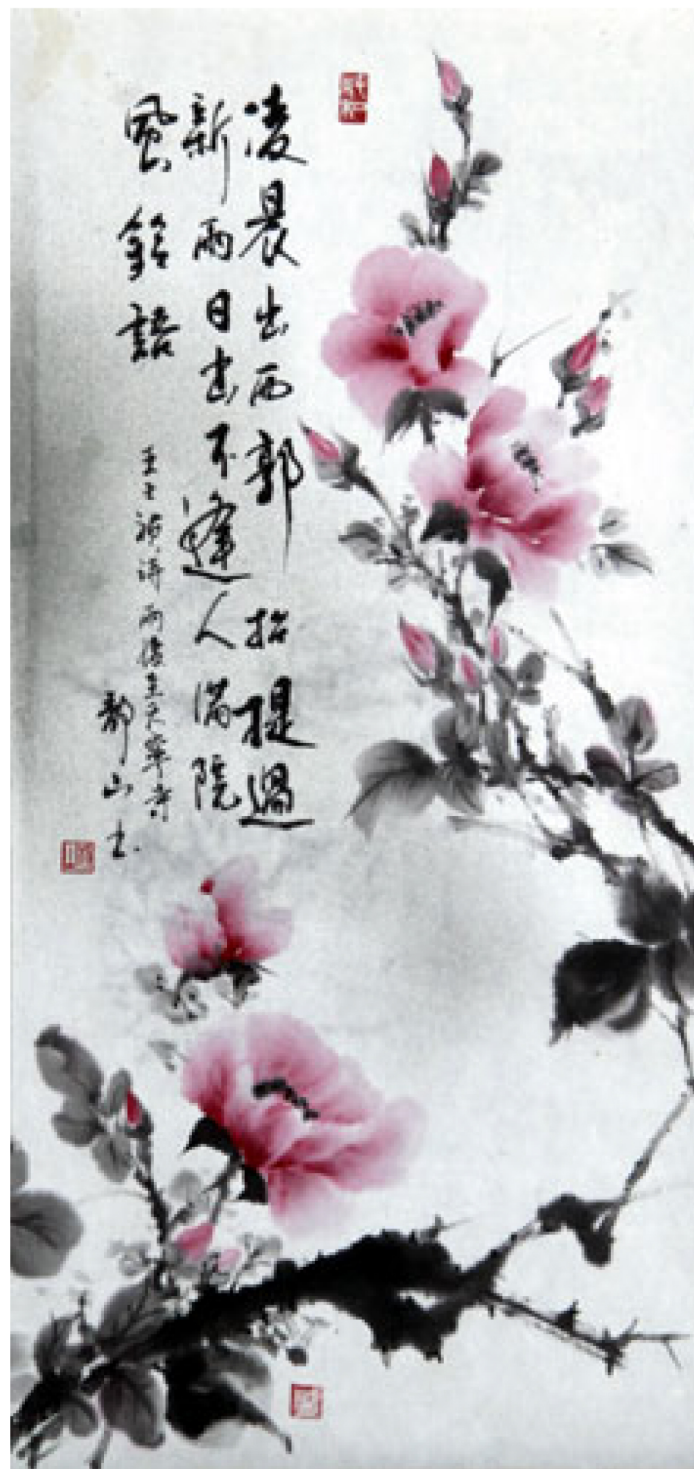 凌晨出西郭招提過
新雨日出不逢人滿院
風鈴語
王士禎詩雨後至天寧寺
山